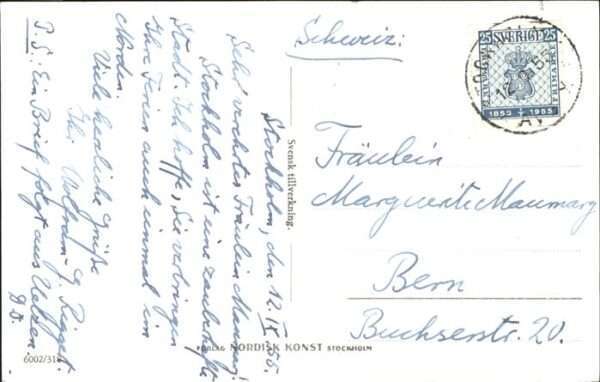 Stockholm, den 12.IX.55.
Sehr verehrtes Fräulein Maumary!
Stockholm ist eine zauberhafte
Stadt. Ich hoffe, Sie verbringen
Ihre Ferien auch einmal im
Norden.
Viele herzliche Grüße
Ihr Wolfram G.
P.S.: Ein Brief folgt aus Uelzen
D.O.
Svensk tillverkning.
Schweiz:
SVERIGE
25
25
FRIMÄRKE
1855
1955
STOCKHOLM
12.9.55
Fräulein
Marguerite Maumary
Bern
Buchserstr. 20.
FÖRLAG NORDISK KONST STOCKHOLM